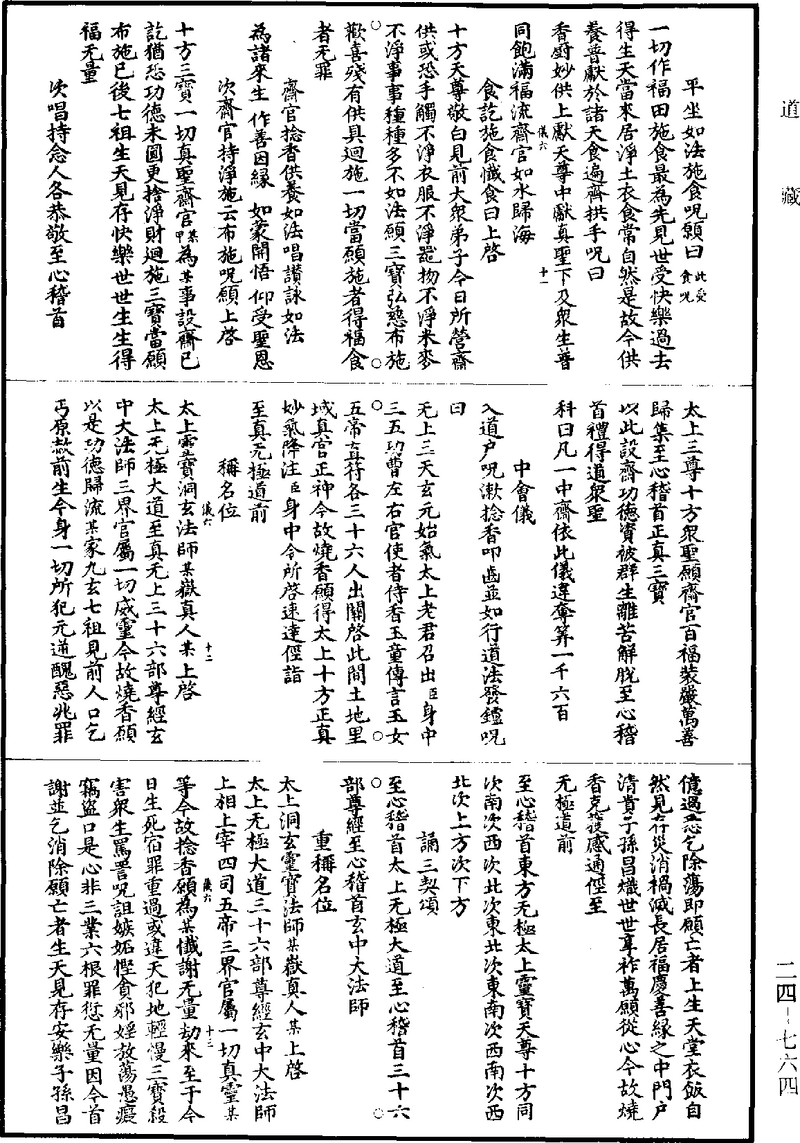 道藏
平坐如法施食呪願曰此受食呪
一切作福田施食最為先見世受快樂過去
得生天當來居淨土衣食常自然是故今供
養普獻於諸天食遍齋拱手呪曰
香厨妙供上獻天尊中獻真聖下及衆生普
儀六
十一
同飽滿福流齋官如水歸海
食訖施食懺食曰上啓
十方天尊敬白見前大衆弟子今日所營齋
供或恐手觸不淨衣服不淨器物不淨米麥
不淨事事種種多不如法願三寶弘慈布施
歡喜殘有供具迴施一切當願施者得福食
者无罪
齋官捻香供養如法唱讃詠如法
為諸來生作善因緣如蒙開悟仰受聖恩
次齋官持淨施云布施呪願上啓
十方三寶一切真聖齋官某甲為某事設齋已
訖猶恐功德未圓更捨淨財迴施三寶當願
布施已後七祖生天見存快樂世世生生得
福无量
次唱持念人各恭敬至心稽首
太上三尊十方衆聖願齋官百福裝嚴萬善
歸集至心稽首正真三寶
以此設齋功德資被群生離苦解脫至心稽
首禮得道衆聖
科曰凡一中齋依此儀違奪筭一千六百
中會儀
入道户呪漱捻香叩齒並如行道法發鑪呪
曰
无上三天玄元始氣太上老君召出臣身中
三五功曹左右官使者侍香玉童傳言玉女
五帝直符各三十六人出關啓此間土地里
域真官正神今故燒香願得太上十方正真
妙氣降注臣身中令所啓速達徑詣
至真无極道前
稱名位
儀六
十二
太上靈寶洞玄法師某嶽真人某上啓
太上无極大道至真无上三十六部尊經玄
中大法師三界官屬一切威靈今故燒香願
以是功德歸流某家九玄七祖見前人口乞
丐原赦前生今身一切所犯元逆醜惡兆罪
億過悉乞除蕩即願亡者上生天堂衣飯自
然見存災消禍滅長居福慶善緣之中門户
清貴子孫昌熾世世享祚萬願從心今故燒
香克獲感通徑至
无極道前
至心稽首東方无極太上靈寶天尊十方同
次南次西次北次東北次東南次西南次西
北次上方次下方
誦三契頌
至心稽首太上无極大道至心稽首三十六
部尊經至心稽首玄中大法師
重稱名位
太上洞玄靈寶法師某嶽真人某上啓
太上无極大道三十六部尊經玄中大法師
上相上宰四司五帝三界官屬一切真靈某
儀六
十三
等今故捻香願為某懺謝无量劫來至于今
日生死宿罪重過或違天犯地輕慢三寶殺
害衆生罵詈呪詛嫉妬慳貪邪婬放蕩愚癡
竊盜口是心非三業六根罪愆无量因今首
謝並乞消除願亡者生天見存安樂子孫昌
二四－七六四